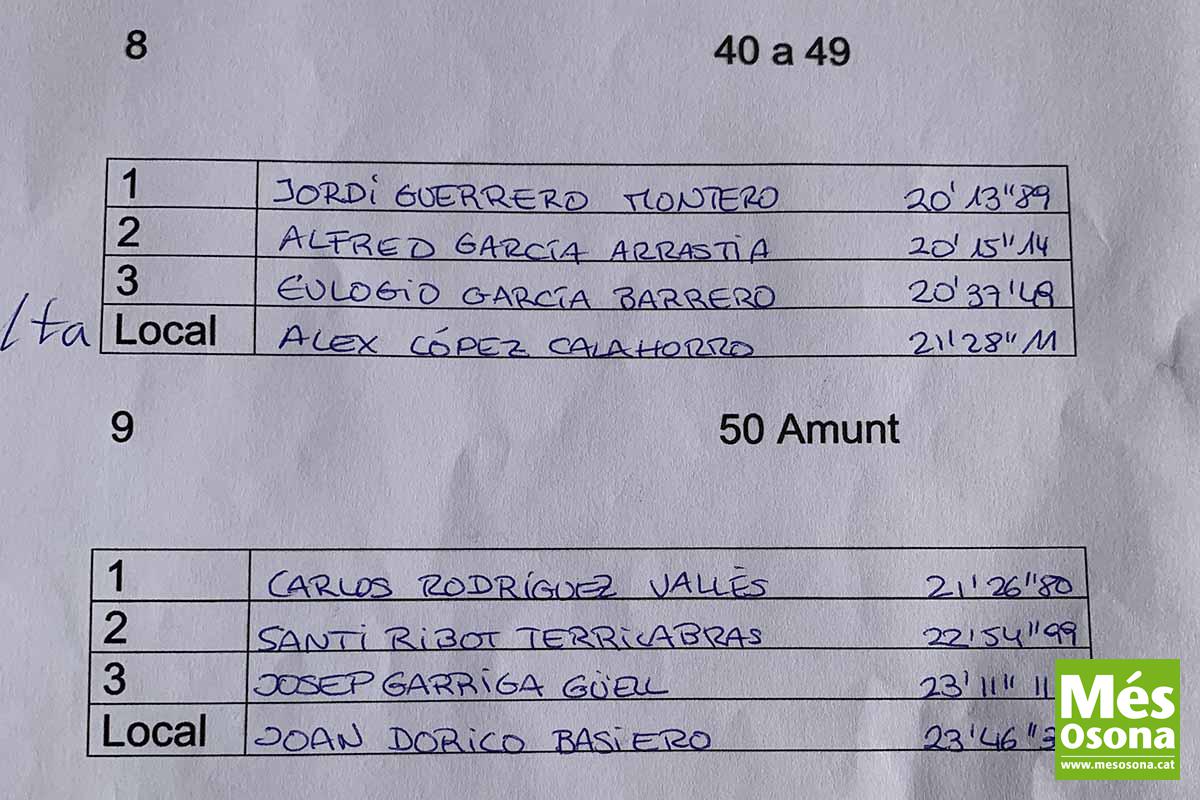 8 40 a 49
1 JORDI GUERRERO MONTERO 20' 13"89
2 ALFRED GARCÍA ARRASTIA 20' 15"14
3 EULOGIO GARCÍA BARRERO
Local ALEX CÓPEZ CALAHORRO 21'28"11
9 50 Amunt
1 CARLOS RODRÍGUEZ VALLÈS 21'26"80
2 SANTI RIBOT TERRICABRAS 22'54"99
3 JOSEP GARRIGA GÜELL 23'11"
Local JOAN DORICO BASIERO 23'46"
Més
Osona
www.mesosona.cat